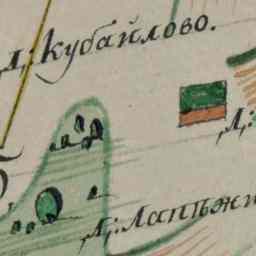 Д: Кубайлово.
Д:
Д: Лапѣжи